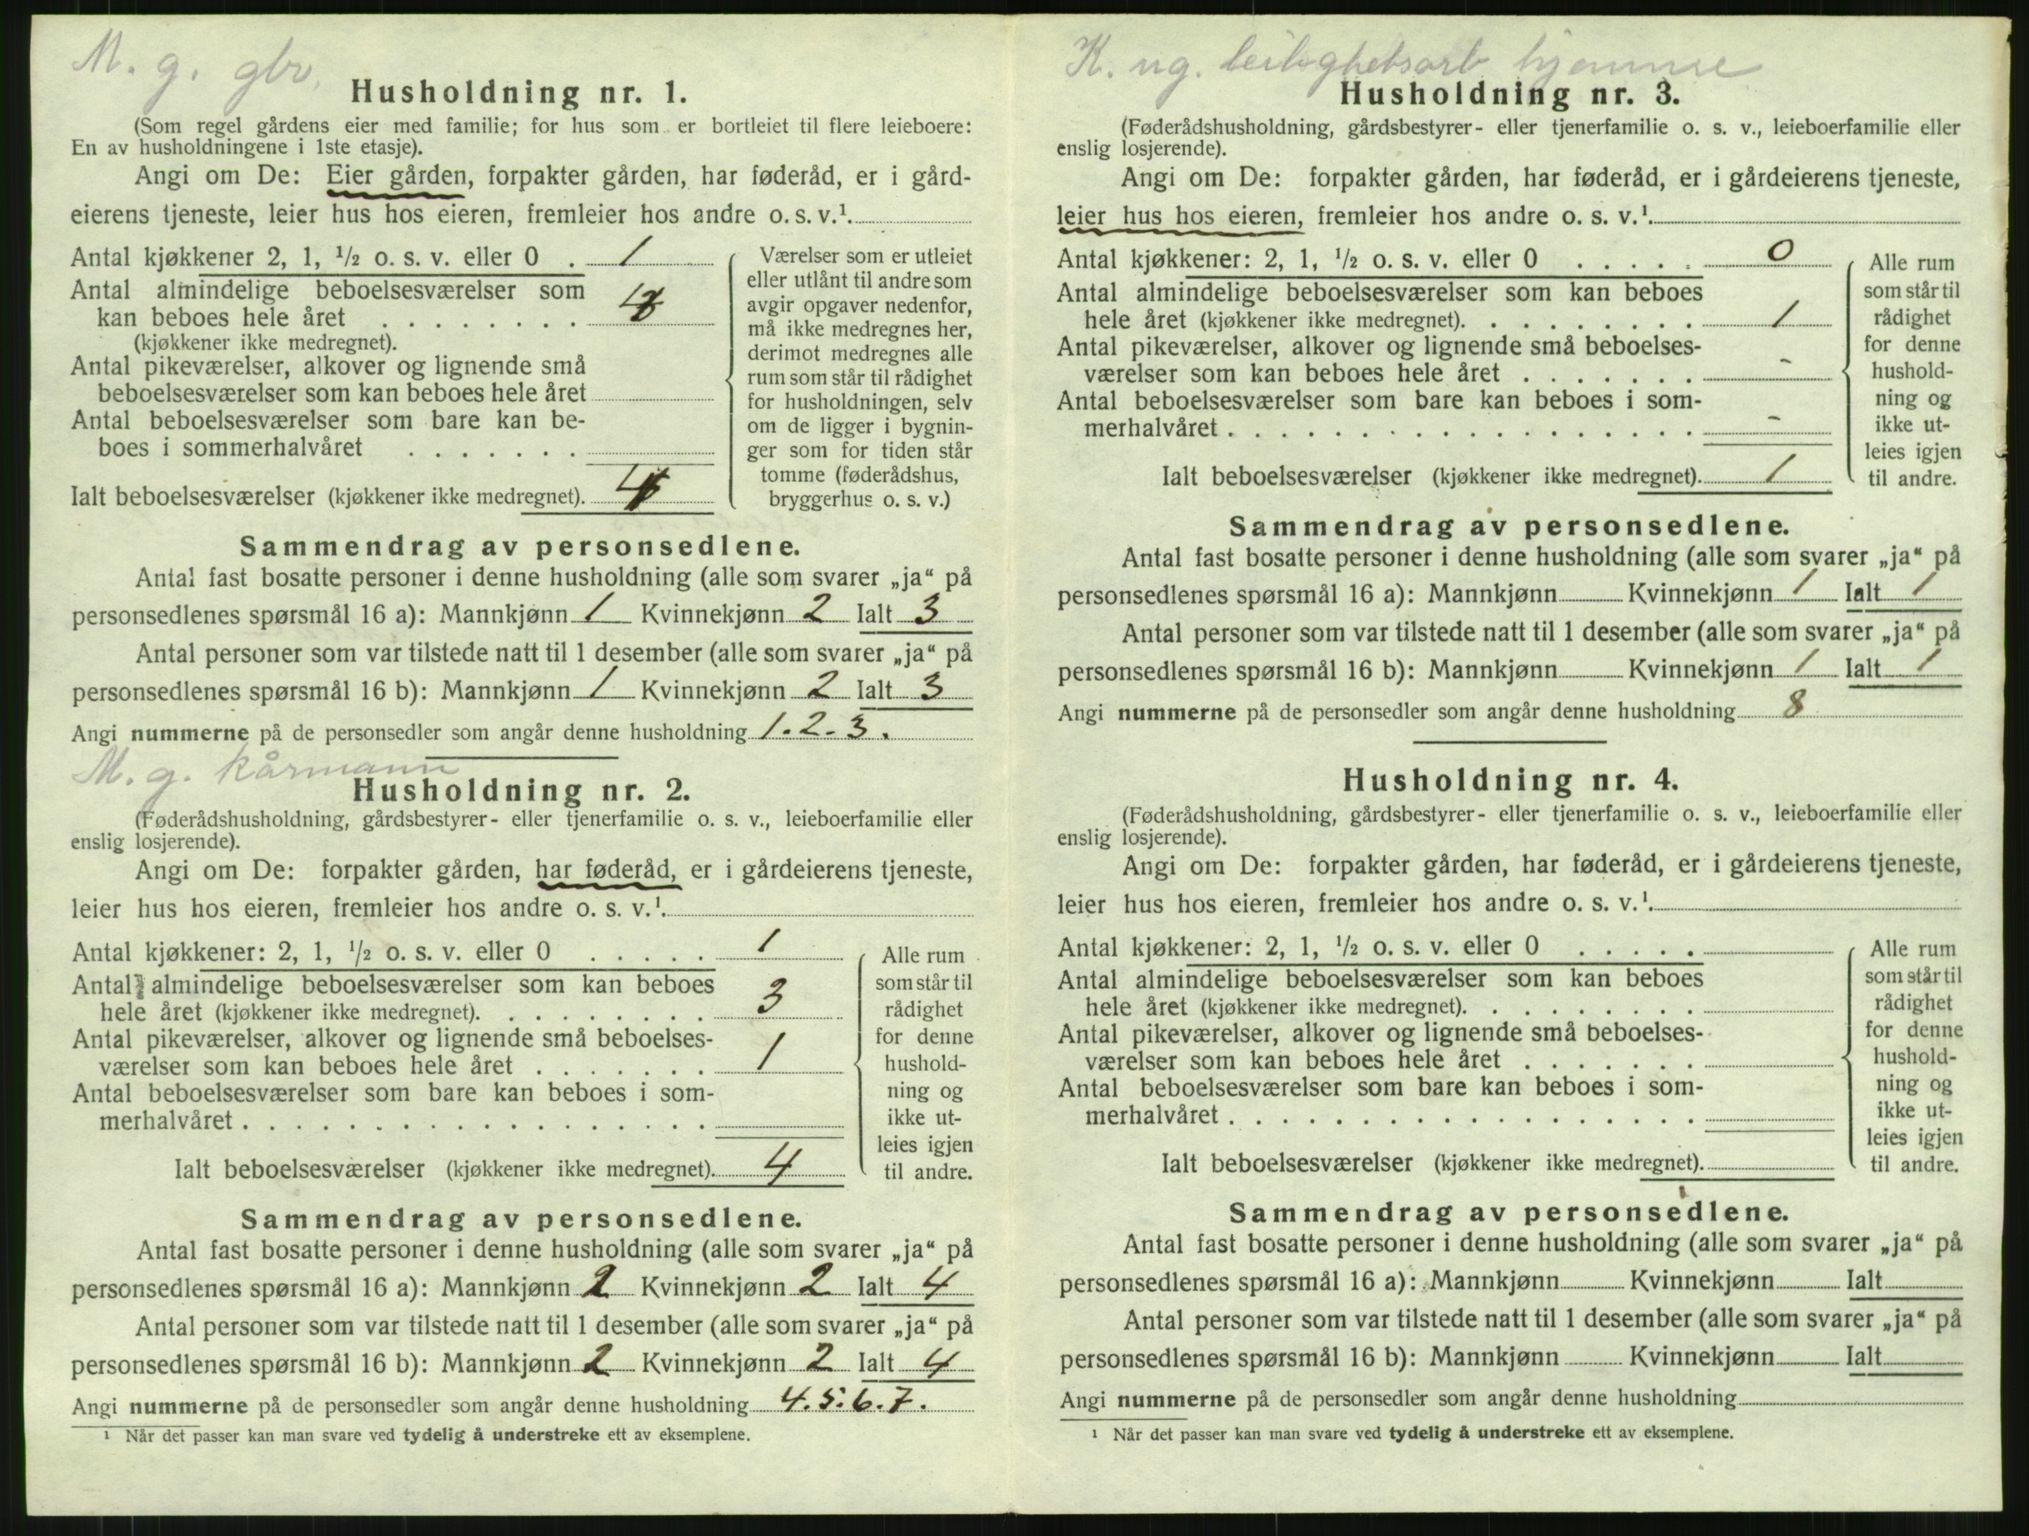 M. g. gbr.
Husholdning nr. 1.
(Som regel gårdens eier med familie; for hus som er bortleiet til flere leieboere:
En av husholdningene i 1ste etasje).
Angi om De: Eier gården, forpakter gården, har føderåd, er i gård-
eierens tjeneste, leier hus hos eieren, fremleier hos andre o. s. v.¹.
Antal kjøkkener 2, 1, ½ o. s. v. eller 0 . 1
Antal almindelige beboelsesværelser som
kan beboes hele året . . . . . . . . 4
(kjøkkener ikke medregnet).
Antal pikeværelser, alkover og lignende små
beboelsesværelser som kan beboes hele året
Antal beboelsesværelser som bare kan be-
boes i sommerhalvåret . . . . . . .
Ialt beboelsesværelser (kjøkkener ikke medregnet). 4
Værelser som er utleiet
eller utlånt til andre som
avgir opgaver nedenfor,
må ikke medregnes her,
derimot medregnes alle
rum som står til rådighet
for husholdningen, selv
om de ligger i bygnin-
ger som for tiden står
tomme (føderådshus,
bryggerhus o. s. v.)
Sammendrag av personsedlene.
Antal fast bosatte personer i denne husholdning (alle som svarer „ja“ på
personsedlenes spørsmål 16 a): Mannkjønn 1 Kvinnekjønn 2 Ialt 3
Antal personer som var tilstede natt til 1 desember (alle som svarer „ja“ på
personsedlenes spørsmål 16 b): Mannkjønn 1 Kvinnekjønn 2 Ialt 3
Angi nummerne på de personsedler som angår denne husholdning 1. 2. 3.
M. g. kårmann
Husholdning nr. 2.
(Føderådshusholdning, gårdsbestyrer- eller tjenerfamilie o. s. v., leieboerfamilie eller
enslig losjerende).
Angi om De: forpakter gården, har føderåd, er i gårdeierens tjeneste,
leier hus hos eieren, fremleier hos andre o. s. v.¹.
Antal kjøkkener: 2, 1, ½ o. s. v. eller 0 . . . . . 1
Antal almindelige beboelsesværelser som kan beboes
hele året (kjøkkener ikke medregnet). . . . . . . . . 3
Antal pikeværelser, alkover og lignende små beboelses-
værelser som kan beboes hele året . . . . . . . 1
Antal beboelsesværelser som bare kan beboes i som-
merhalvåret . . . . . . . . . . . . . . . . . .
Ialt beboelsesværelser (kjøkkener ikke medregnet). 4
Alle rum
som står til
rådighet
for denne
hushold-
ning og
ikke ut-
leies igjen
til andre.
Sammendrag av personsedlene.
Antal fast bosatte personer i denne husholdning (alle som svarer „ja“ på
personsedlenes spørsmål 16 a): Mannkjønn 2 Kvinnekjønn 2 Ialt 4
Antal personer som var tilstede natt til 1 desember (alle som svarer „ja“ på
personsedlenes spørsmål 16 b): Mannkjønn 2 Kvinnekjønn 2 Ialt 4
Angi nummerne på de personsedler som angår denne husholdning 4. 5. 6. 7.
¹ Når det passer kan man svare ved tydelig å understreke ett av eksemplene.
K. ug. leilighetsarb hjemme
Husholdning nr. 3.
(Føderådshusholdning, gårdsbestyrer- eller tjenerfamilie o. s. v., leieboerfamilie eller
enslig losjerende).
Angi om De: forpakter gården, har føderåd, er i gårdeierens tjeneste,
leier hus hos eieren, fremleier hos andre o. s. v.¹.
Antal kjøkkener: 2, 1, ½ o. s. v. eller 0 . . . . . 0
Antal almindelige beboelsesværelser som kan beboes
hele året (kjøkkener ikke medregnet). . . . . . . . . 1
Antal pikeværelser, alkover og lignende små beboelses-
værelser som kan beboes hele året . . . . . . . -
Antal beboelsesværelser som bare kan beboes i som-
merhalvåret . . . . . . . . . . . . . . . . . . -
Ialt beboelsesværelser (kjøkkener ikke medregnet). 1
Alle rum
som står til
rådighet
for denne
hushold-
ning og
ikke ut-
leies igjen
til andre.
Sammendrag av personsedlene.
Antal fast bosatte personer i denne husholdning (alle som svarer „ja“ på
personsedlenes spørsmål 16 a): Mannkjønn Kvinnekjønn 1 Ialt 1
Antal personer som var tilstede natt til 1 desember (alle som svarer „ja“ på
personsedlenes spørsmål 16 b): Mannkjønn Kvinnekjønn 1 Ialt 1
Angi nummerne på de personsedler som angår denne husholdning 8
Husholdning nr. 4.
(Føderådshusholdning, gårdsbestyrer- eller tjenerfamilie o. s. v., leieboerfamilie eller
enslig losjerende).
Angi om De: forpakter gården, har føderåd, er i gårdeierens tjeneste,
leier hus hos eieren, fremleier hos andre o. s. v.¹.
Antal kjøkkener: 2, 1, ½ o. s. v. eller 0 . . . . .
Antal almindelige beboelsesværelser som kan beboes
hele året (kjøkkener ikke medregnet). . . . . . . . .
Antal pikeværelser, alkover og lignende små beboelses-
værelser som kan beboes hele året . . . . . . .
Antal beboelsesværelser som bare kan beboes i som-
merhalvåret . . . . . . . . . . . . . . . . . .
Ialt beboelsesværelser (kjøkkener ikke medregnet).
Alle rum
som står til
rådighet
for denne
hushold-
ning og
ikke ut-
leies igjen
til andre.
Sammendrag av personsedlene.
Antal fast bosatte personer i denne husholdning (alle som svarer „ja“ på
personsedlenes spørsmål 16 a): Mannkjønn Kvinnekjønn Ialt
Antal personer som var tilstede natt til 1 desember (alle som svarer „ja“ på
personsedlenes spørsmål 16 b): Mannkjønn Kvinnekjønn Ialt
Angi nummerne på de personsedler som angår denne husholdning
¹ Når det passer kan man svare ved tydelig å understreke ett av eksemplene.